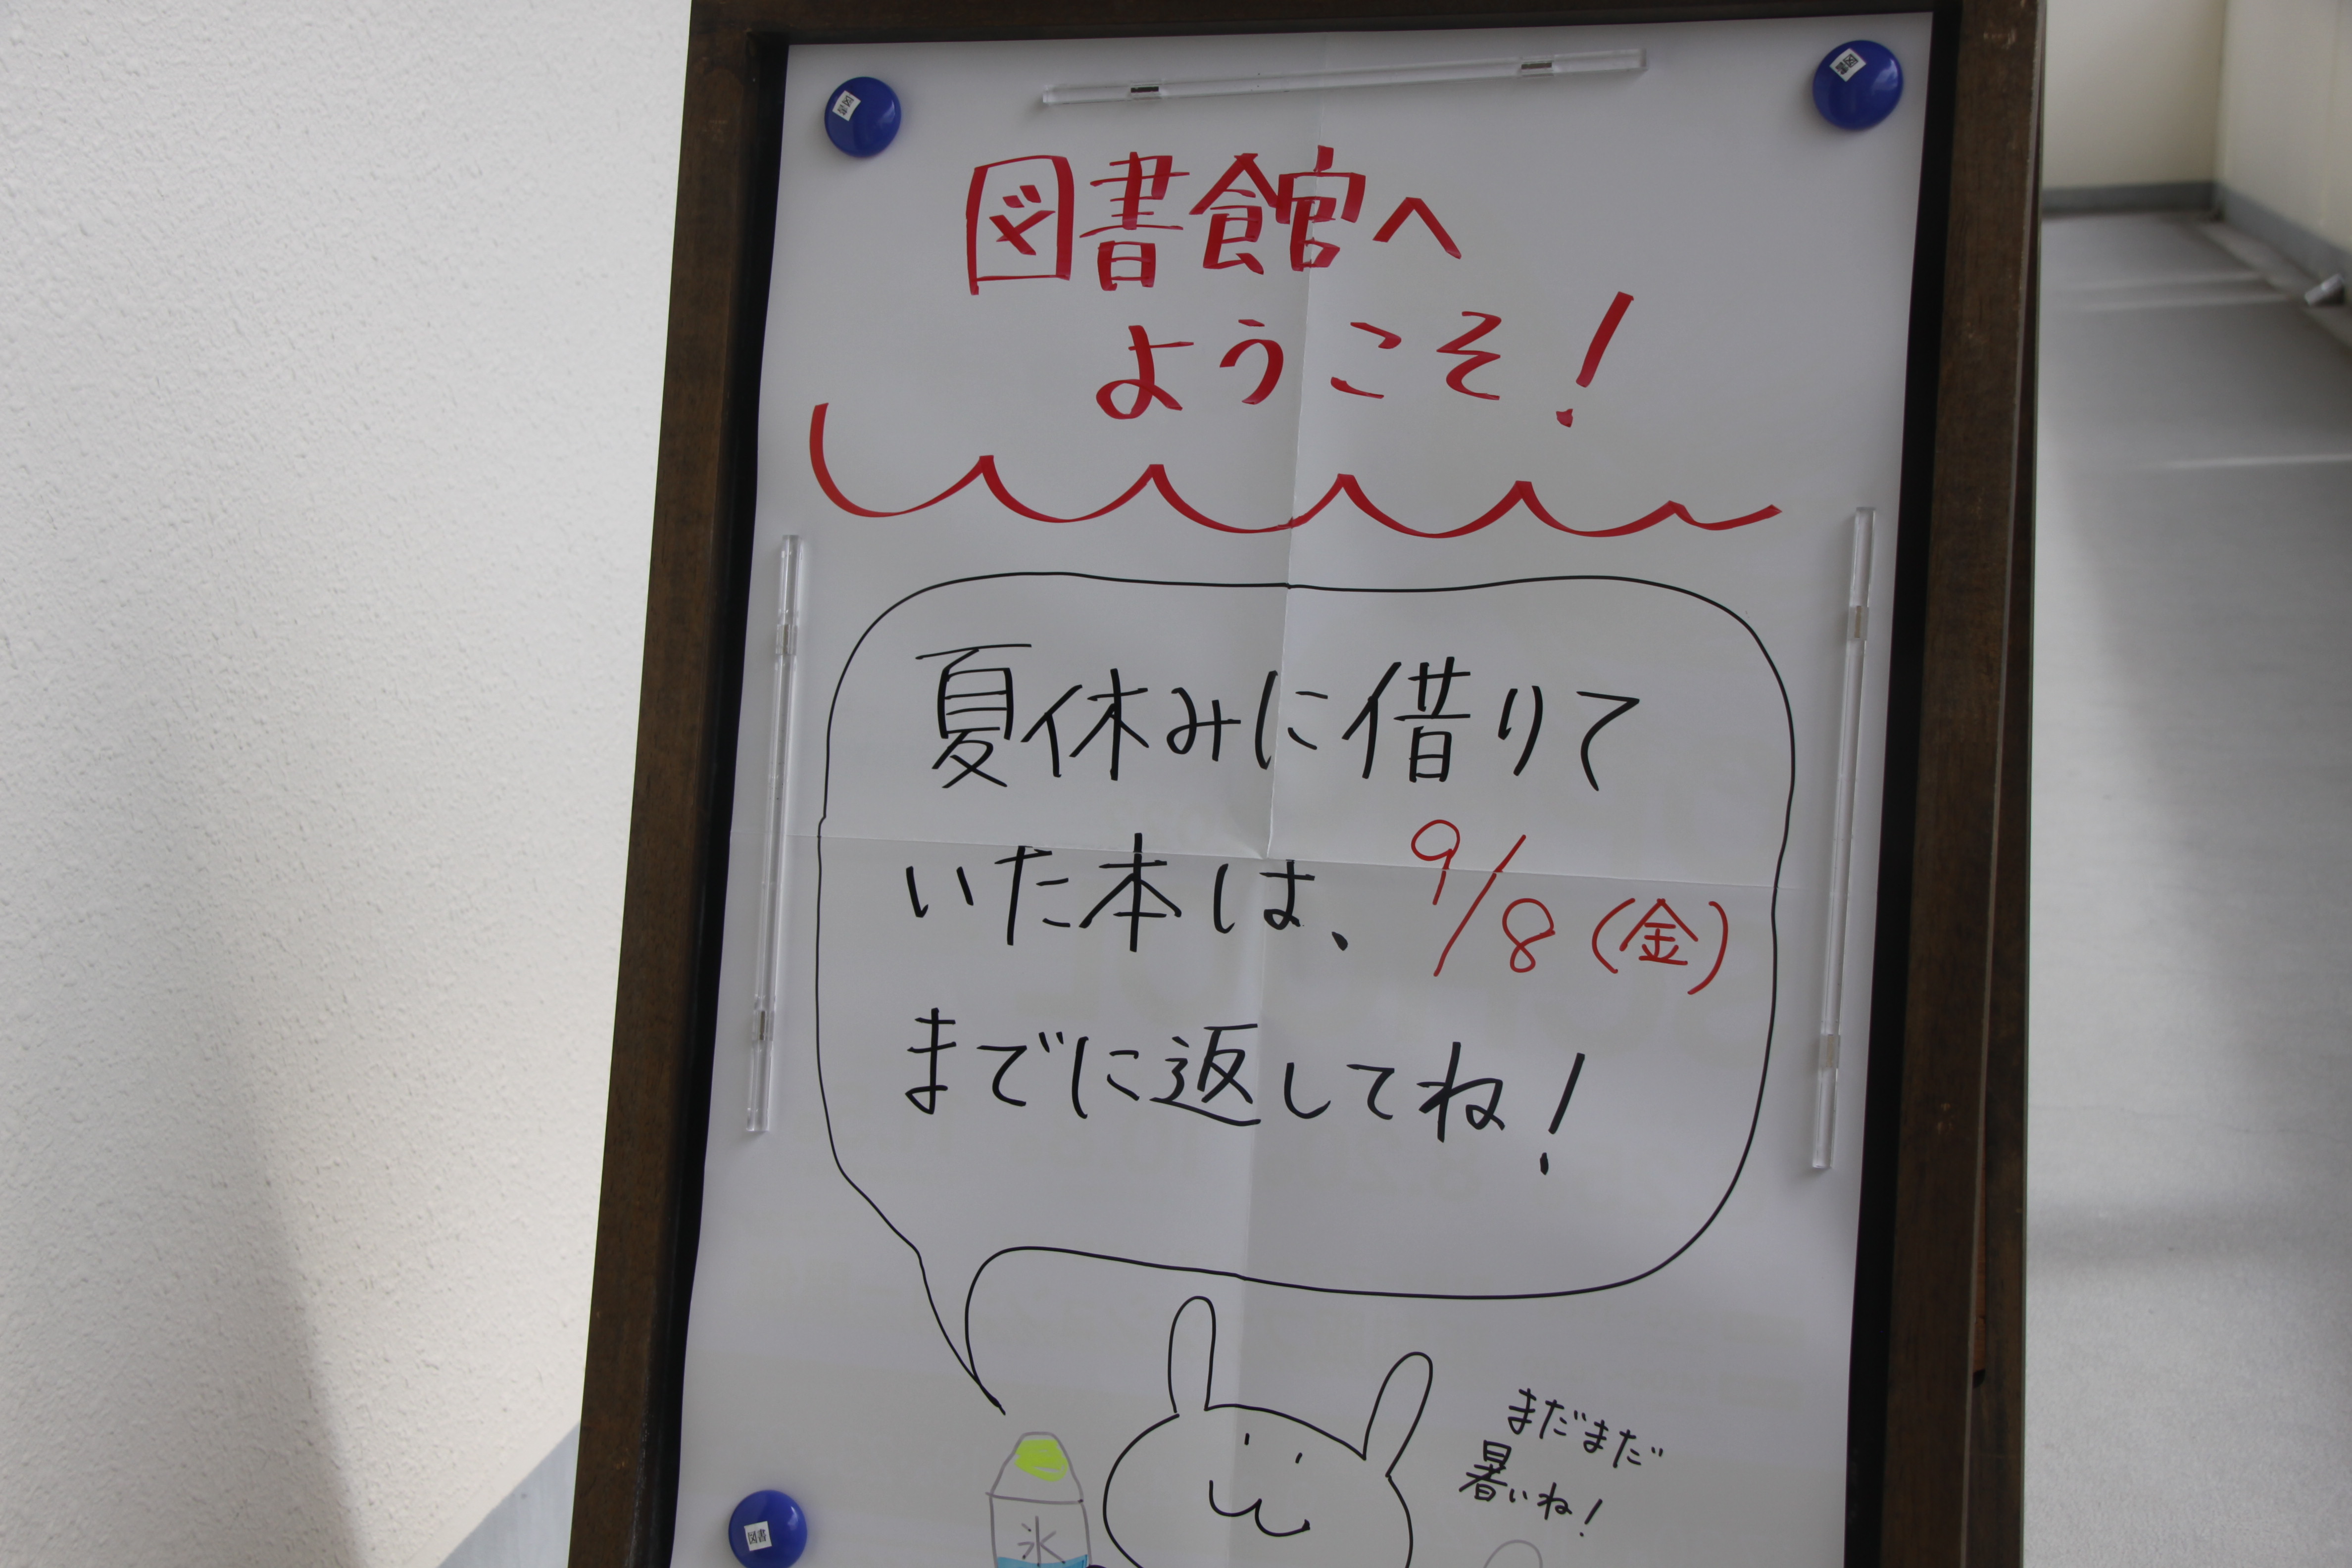 図書館へ
ようこそ!
夏休みに借りて
いた本は、9/8(金)
までに返してね!
まだまだ
暑いね!
氷
図書